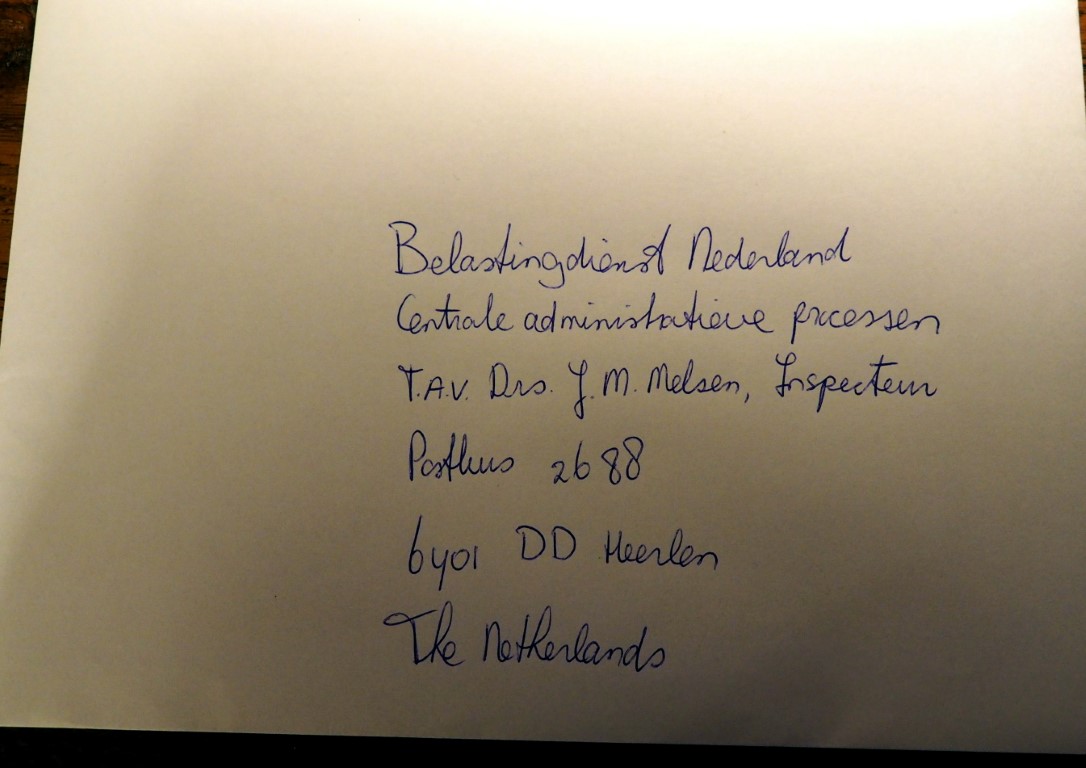 Belastingdienst Nederland
Centrale administratieve processen
T.A.V. Drs. J.M. Melsen, Inspecteur
Postbus 2688
6401 DD Heerlen
The Netherlands